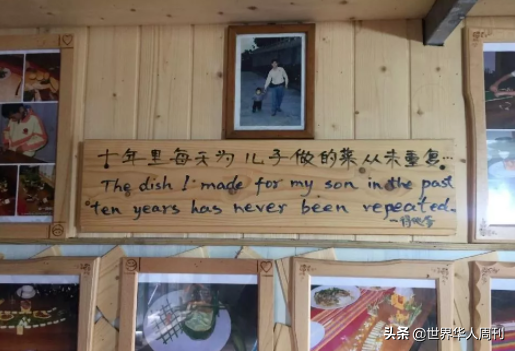 十年里每天为儿子做的菜从未重复…
The dish I made for my son in the past
ten years has never been repeated.
头条 @世界华人周刊